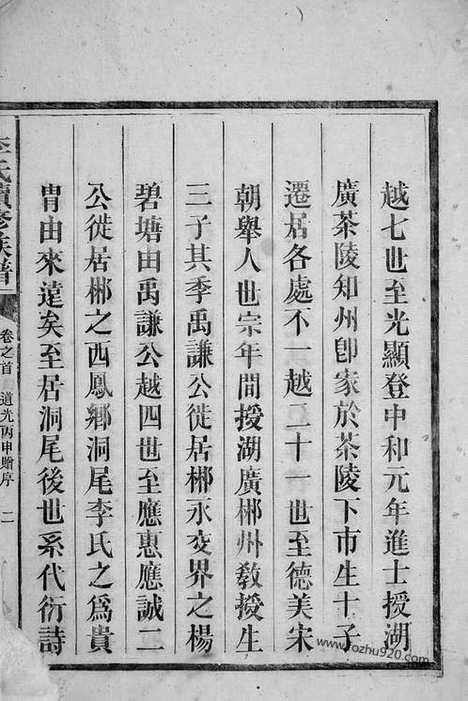 越七世至光顯登中和元年進士授湖
廣茶陵知州卽家於茶陵下市生十子
遷居各處不一越二十一世至德美宋
朝舉人世宗年間授湖廣郴州敎授生
三子其季禹謙公徙居郴永交界之楊
碧塘由禹謙公越四世至應惠應誠二
公徙居郴之西鳳鄉洞尾李氏之爲貴
冑由來遠矣至居洞尾後世系代衍詩
李氏續修族譜
卷之首 道光丙申贈序 二
www.fozhu920.com